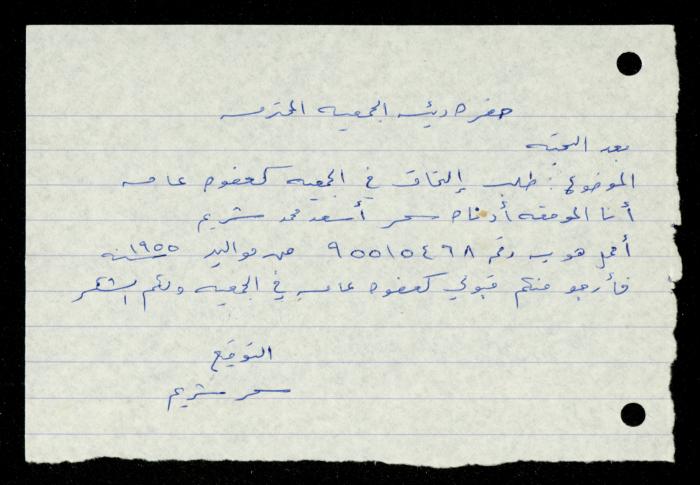 حضرة رئيسة الجمعية المحترمة
بعد التحية
الموضوع: طلب إلتحاق في الجمعية كعضوة عامة
أنا الموقعة أدناه سحر أسعد محمد شريم
أحمل هوية رقم ٩٥٥١٥٤٦٨ من مواليد سنة ١٩٥٥
فأرجو منكم قبولي كعضوة عامة في الجمعية ولكم الشكر
التوقيع
سحر شريم